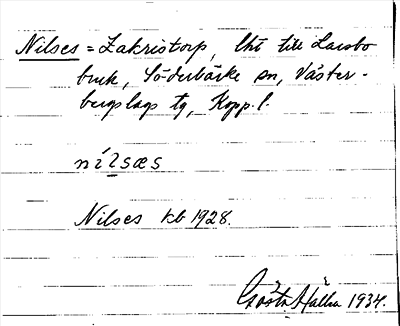 Nilses = Zakristorp, lht till Larsbo
bruk, Söderbärke sn, Väster-
bergslags tg, Kopp. l.
nilsæs
Nilses kb 1928.
Gösta Hallin 1934.